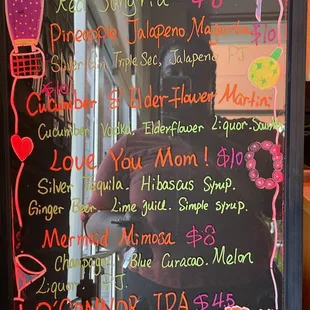 Red Sangria $8
Pineapple Jalapeno Margarita $10
Silver Gin Triple Sec, Jalapeno P.J
$10
Cucumber & Elder-Flower Martini
Cucumber Vodka. Elderflower Liquor.
Love You Mom! $10
Silver Tequila. Hibascus Syrup.
Ginger Beer. Lime Juice. Simple syrup.
Mermaid Mimosa $8
Champagne. Blue Curacao. Melon
Liquor. P.J.
O'CONNOR IPA $45